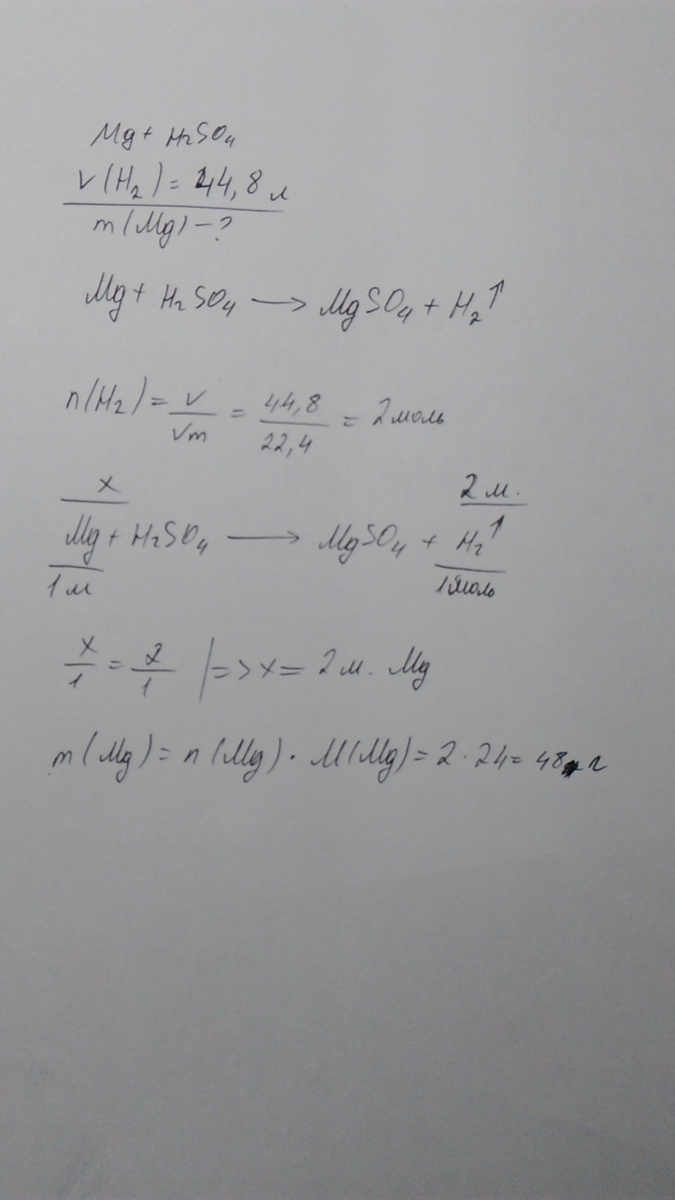 Mg + H₂SO₄
V(H₂) = 44,8 л
m(Mg) - ?
Mg + H₂SO₄ ⟶ MgSO₄ + H₂↑
n(H₂) = V/Vm = 44,8/22,4 = 2 моль
x 2 м.
Mg + H₂SO₄ ⟶ MgSO₄ + H₂↑
1 м 1 моль
x/1 = 2/1 | => x = 2 м. Mg
m(Mg) = n(Mg) · M(Mg) = 2 · 24 = 48 г